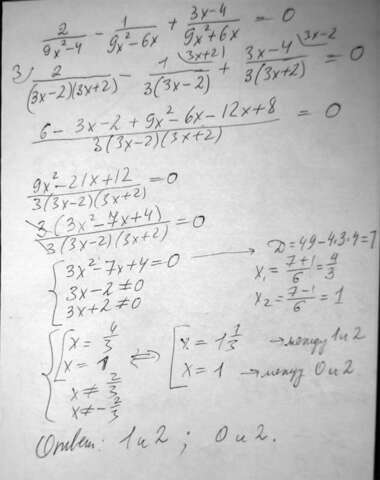 2/(9x²-4) - 1/(9x²-6x) + (3x-4)/(9x²+6x) = 0
3) 2/((3x-2)(3x+2)) - 1 (3x+2)/(3(3x-2)) + 3x-4 (3x-2)/(3(3x+2)) = 0
(6-3x-2+9x²-6x-12x+8)/(3(3x-2)(3x+2)) = 0
(9x²-21x+12)/(3(3x-2)(3x+2)) = 0
3(3x²-7x+4)/(3(3x-2)(3x+2)) = 0
{ 3x²-7x+4=0
3x-2≠0
3x+2≠0
→ D=49-4·3·4=1
x₁=(7+1)/6=4/3
x₂=(7-1)/6=1
{ [ x=4/3
x=1
x≠2/3
x≠-2/3
⇔ [ x=1 1/3 → между 1 и 2
x=1 → между 0 и 2
Ответ: 1 и 2; 0 и 2.